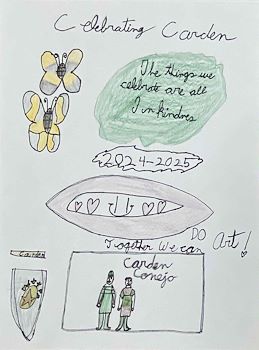 Celebrating Carden
The things we
celebrate are all
in kindres
2024-2025
Together We can DO Art!
Carden
Carden
Conejo